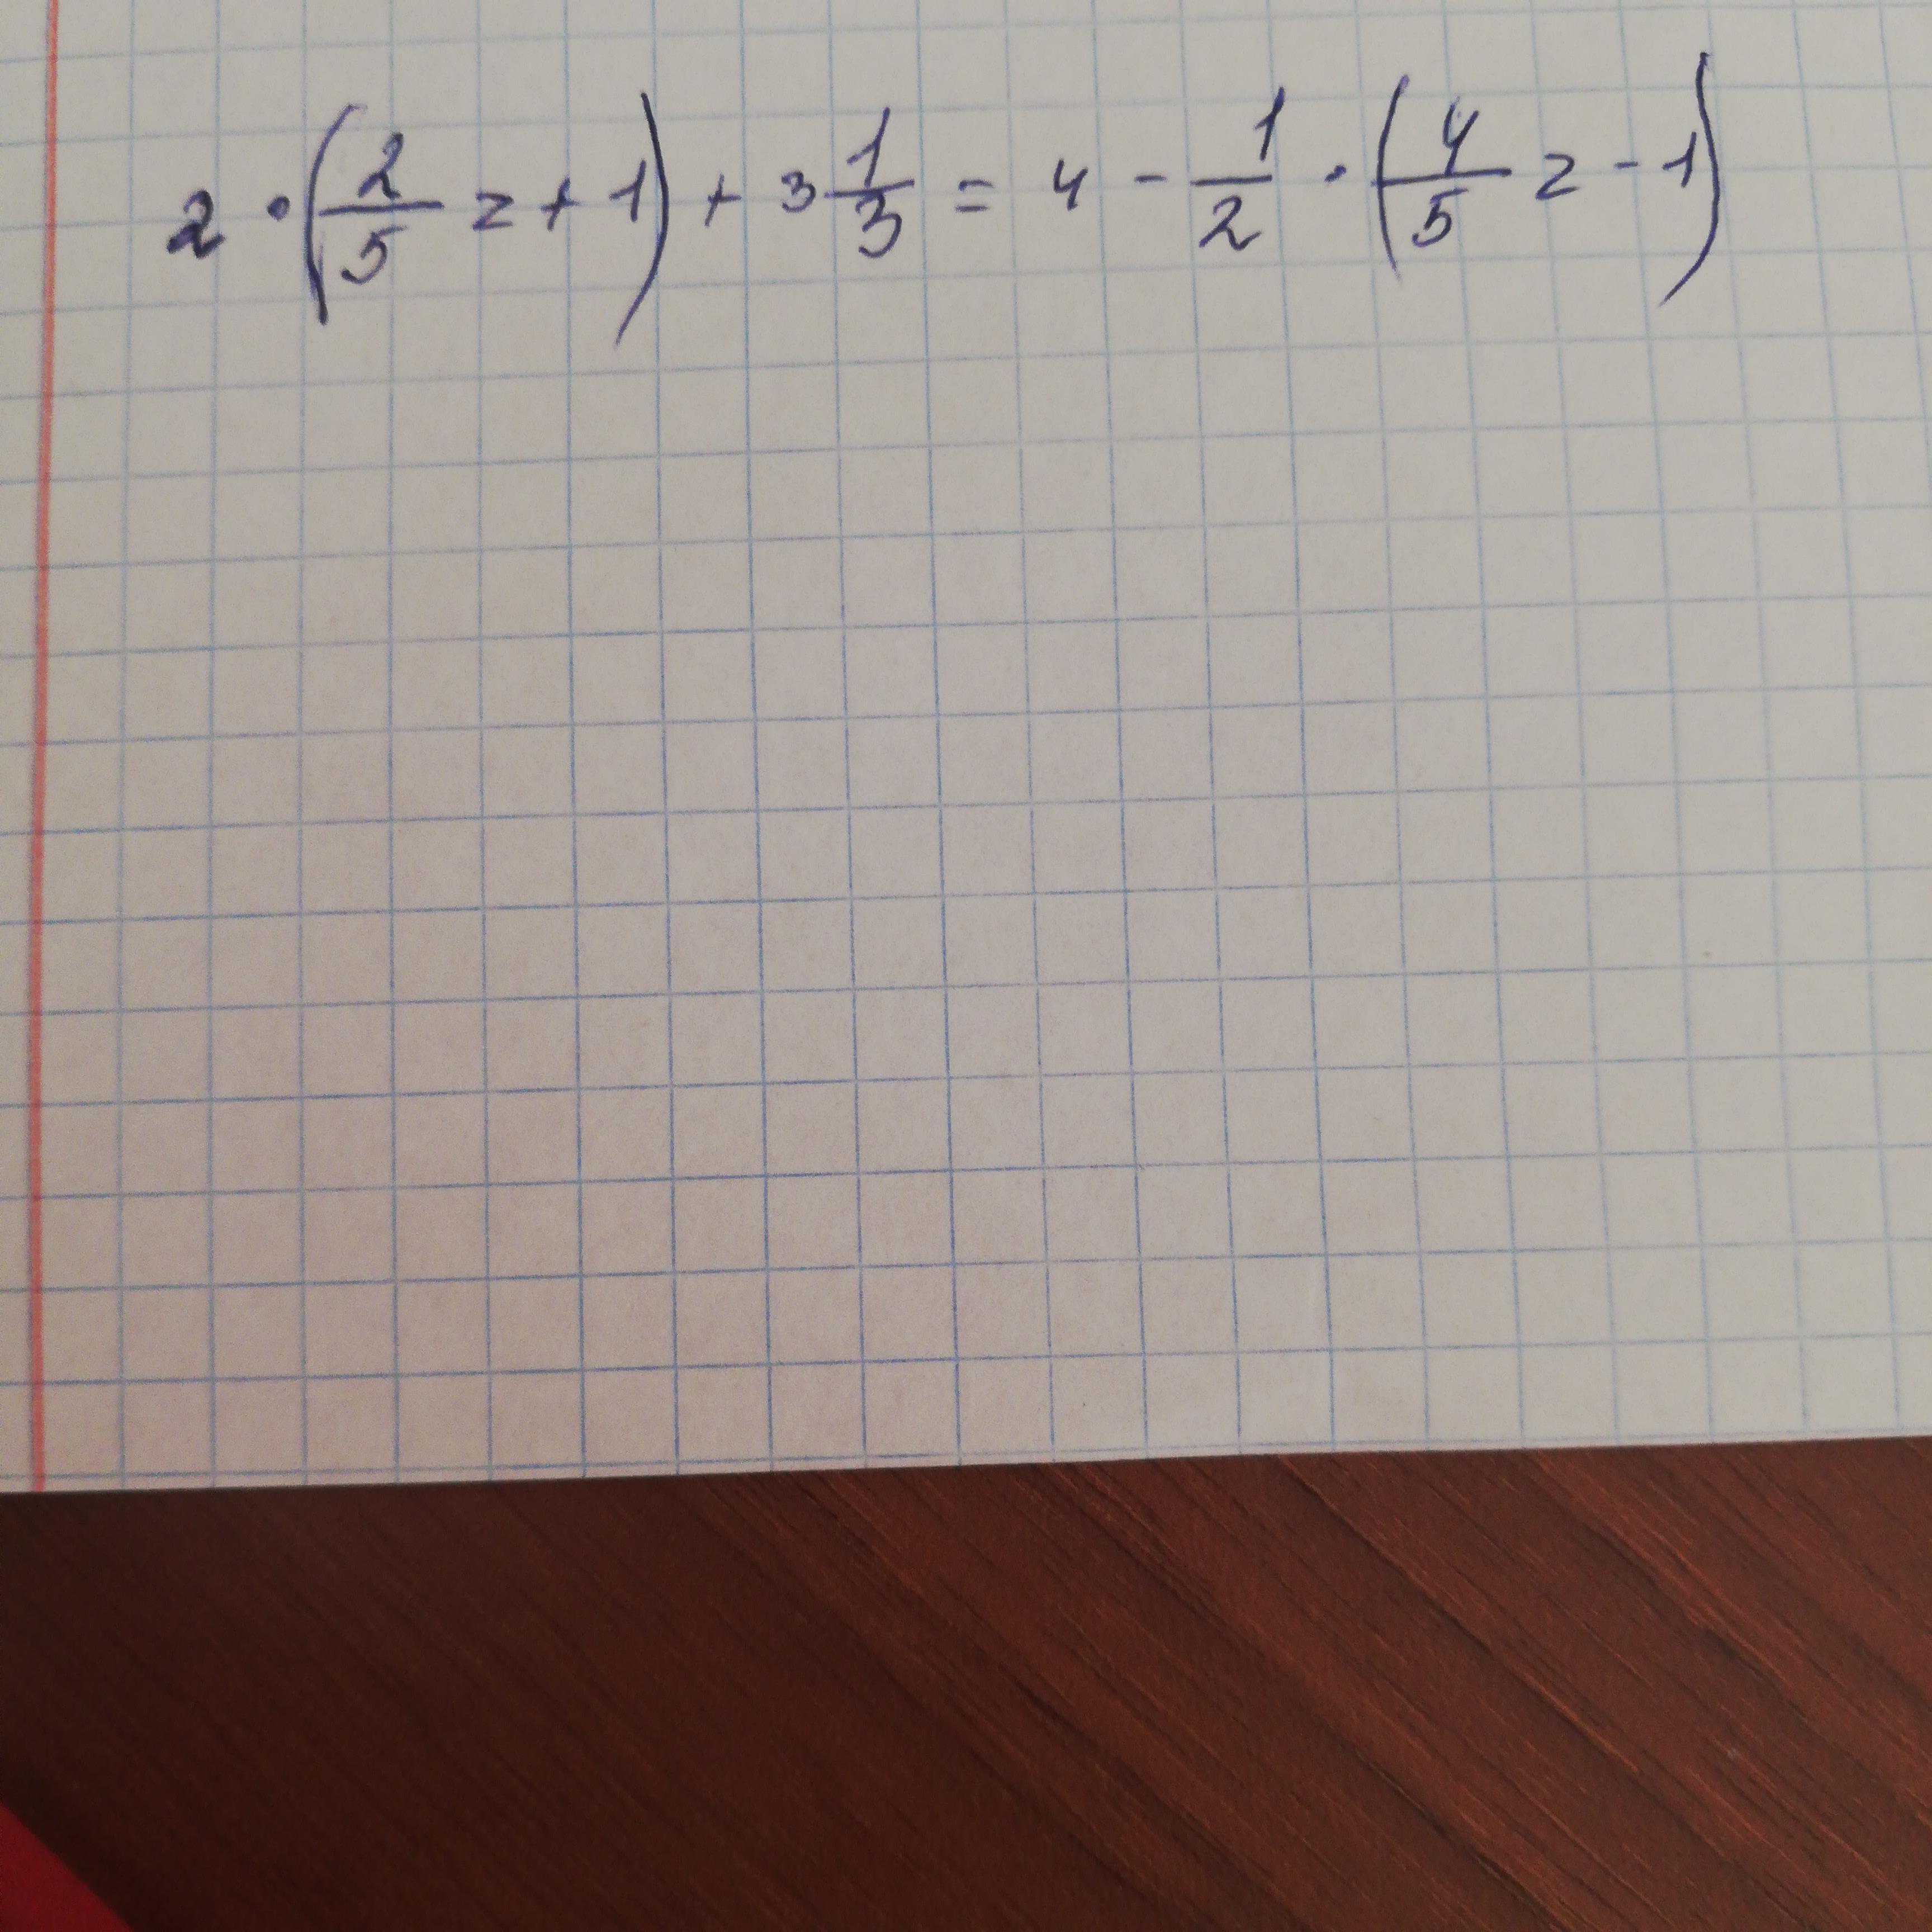 2 · (2/5 z + 1) + 3 1/3 = 4 - 1/2 · (4/5 z - 1)